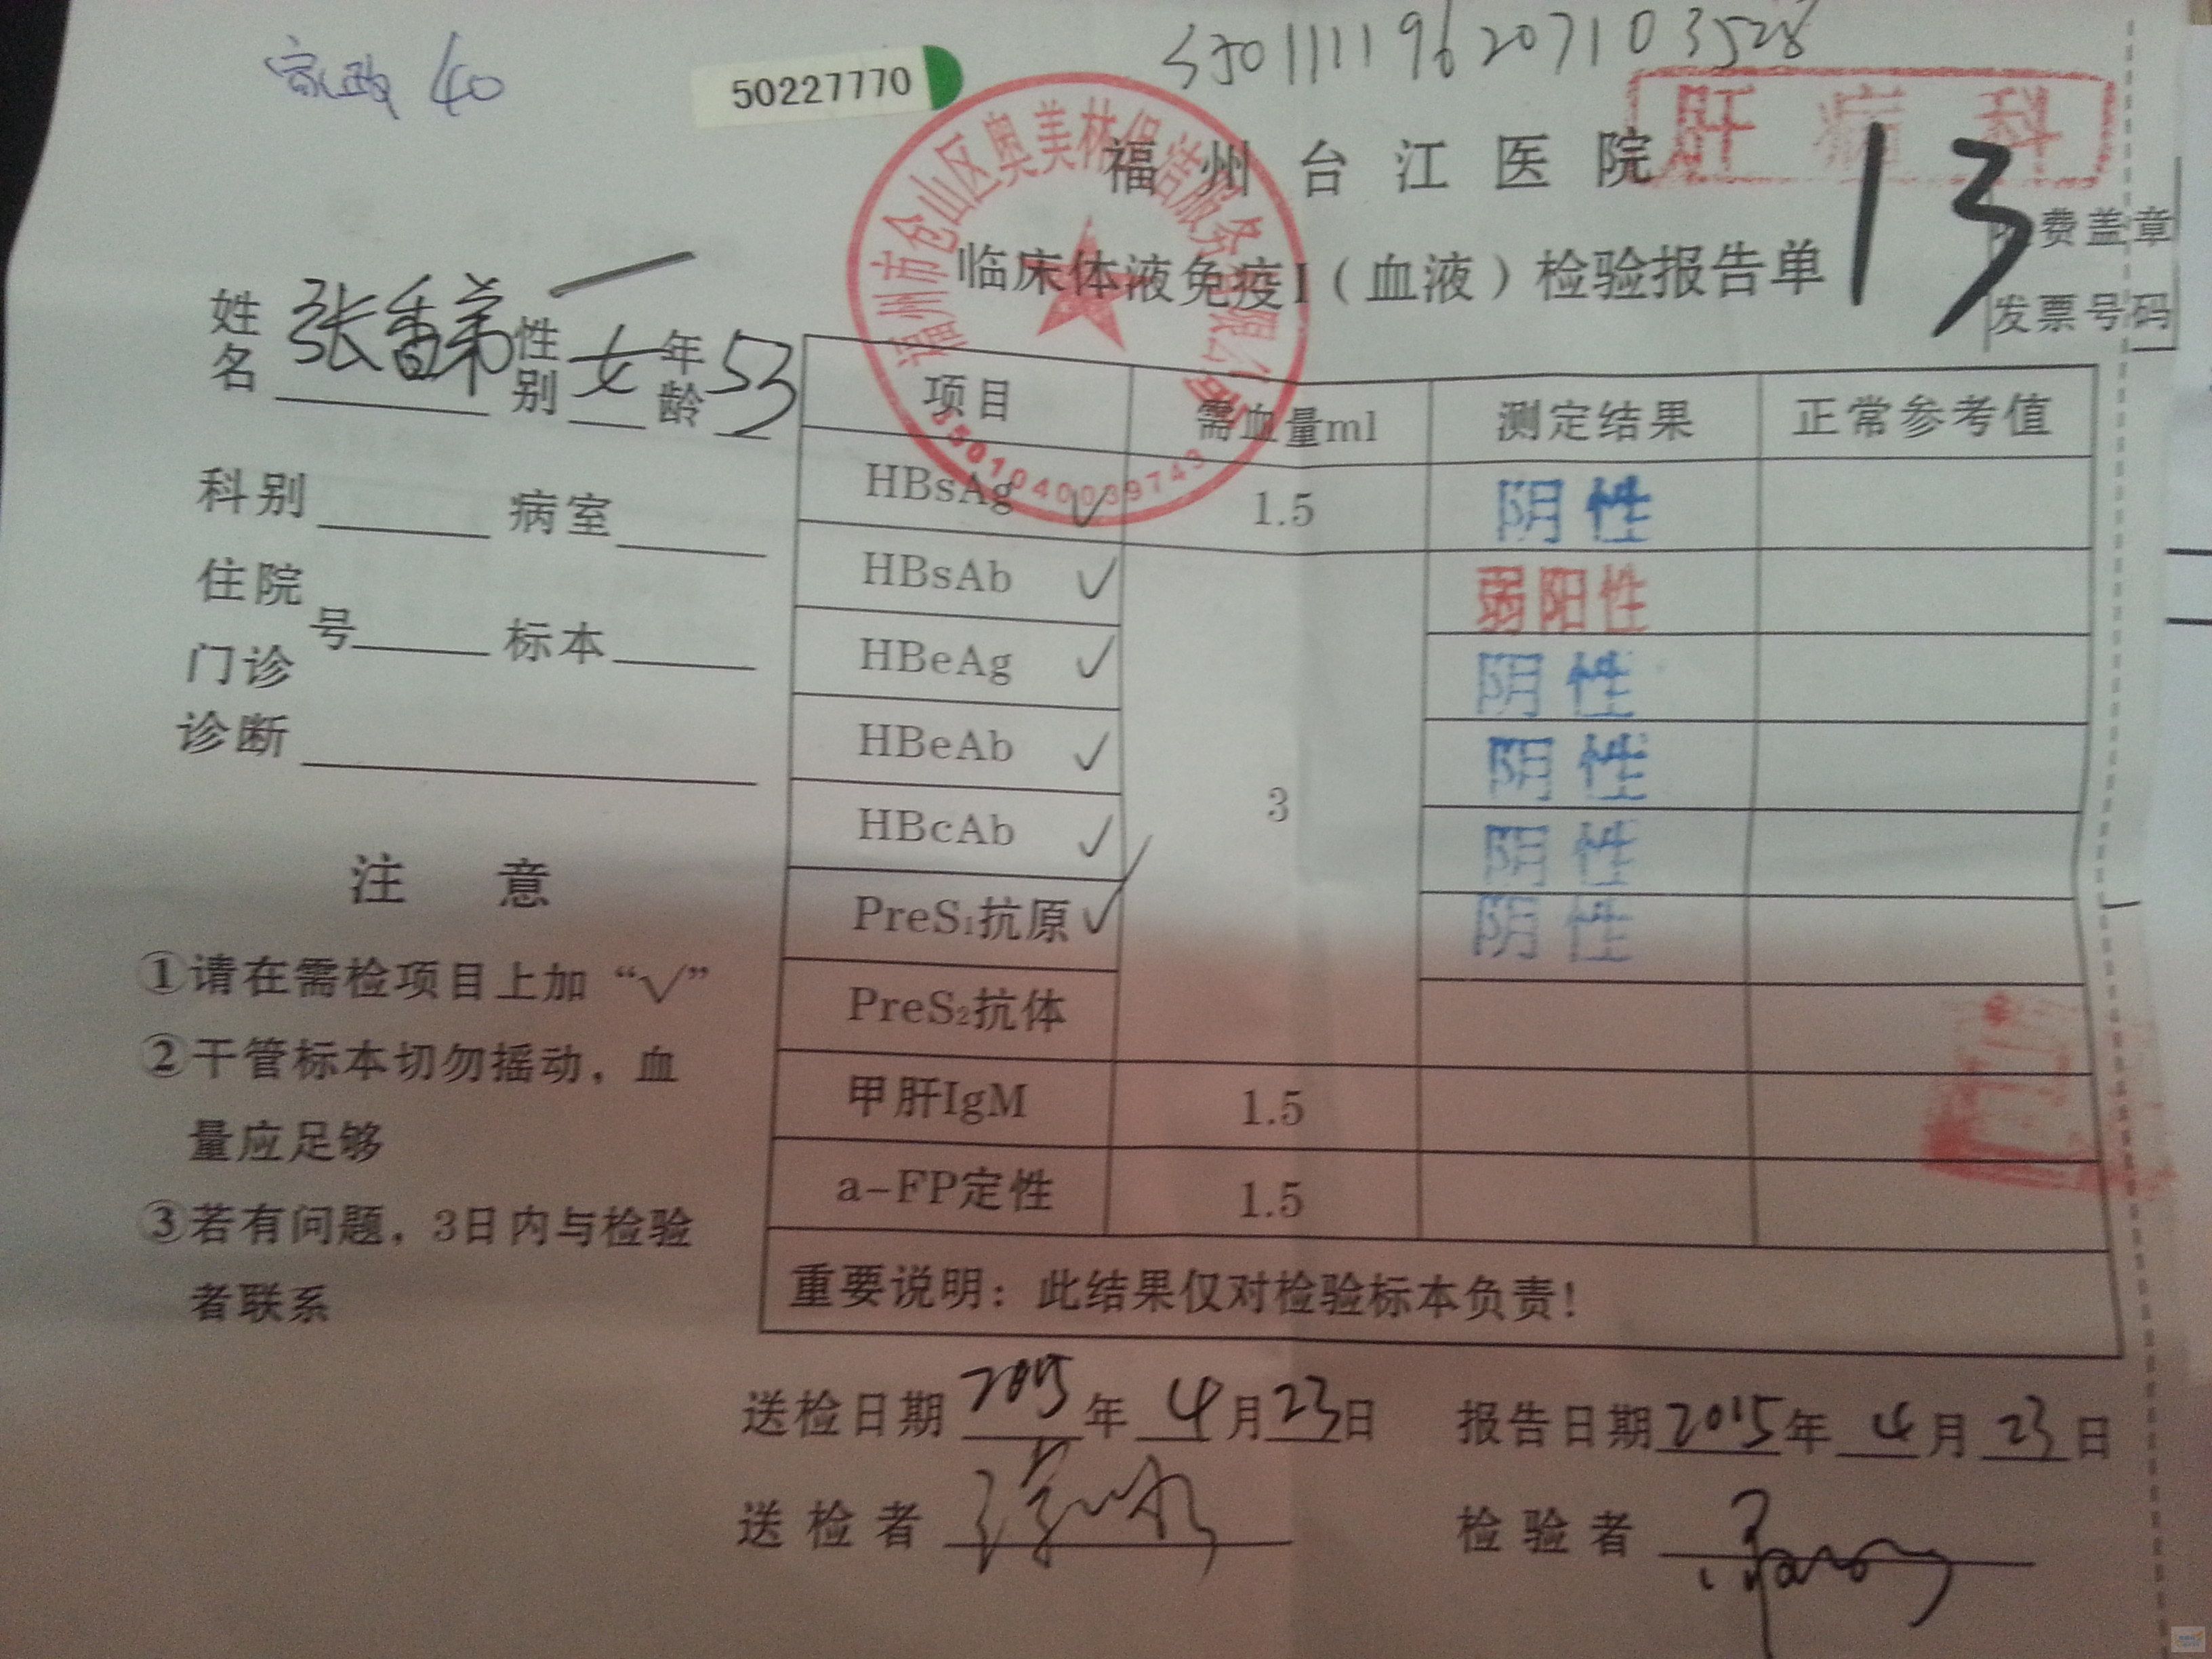 家政 40
50227770
福州市仓山区奥美林保洁服务有限公司
3501040039743
肝病科
福州台江医院
13
临床体液免疫I（血液）检验报告单
费盖章
发票号码
姓名 张香弟 性别 女 年龄 53
科别 病室
住院
号 标本
门诊
诊断
注 意
①请在需检项目上加“√”
②干管标本切勿摇动，血
量应足够
③若有问题，3日内与检验
者联系
项目 需血量ml 测定结果 正常参考值
HBsAg √ 1.5 阴性
HBsAb √ 弱阳性
HBeAg √ 阴性
HBeAb √ 3 阴性
HBcAb √ 阴性
PreS₁抗原 √ 阴性
PreS₂抗体
甲肝IgM 1.5
a-FP定性 1.5
重要说明：此结果仅对检验标本负责！
送检日期 2015年 4月23日 报告日期 2015年 4月 23日
送检者 检验者